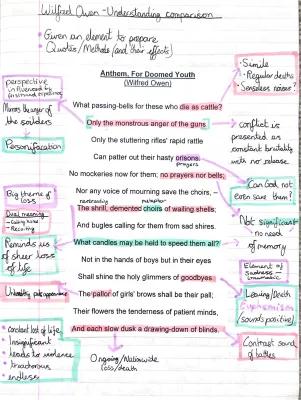 Wilfred Owen - Understanding comparison
• Given an element to prepare
• Quotes/Methods (and their effects)
Anthem, For Doomed Youth
(Wilfred Owen)
• Simile
• Regular deaths
• Senseless noises?
perspective
influenced by
firsthand experience
What passing-bells for these who die as cattle?
Mirrors the anger of
the soldiers
Only the monstrous anger of the guns.
conflict is
presented as
constant brutality
with no release
Personification
Only the stuttering rifles' rapid rattle
Can patter out their hasty orisons.
prayers
No mockeries now for them; no prayers nor bells;
Can God not
even save them?
Big theme of
loss
Nor any voice of mourning save the choirs, –
metaphor
The shrill, demented choirs of wailing shells;
Not significant
no need
of memory
Dual meaning
- Calling
And bugles calling for them from sad shires.
What candles may be held to speed them all?
Reminds us
of sheer loss
of life
Not in the hands of boys but in their eyes
Element of
sadness
Shall shine the holy glimmers of goodbyes.
Leaving/Death
Euphemism
(sounds positive)
Unhealthy pale appearance
The pallor of girls' brows shall be their pall;
Their flowers the tenderness of patient minds,
And each slow dusk a drawing-down of blinds.
Contrast sound
of battles
• constant loss of life
• Insignificant
• leads to violence
• endless
Ongoing/Nationwide
loss/death